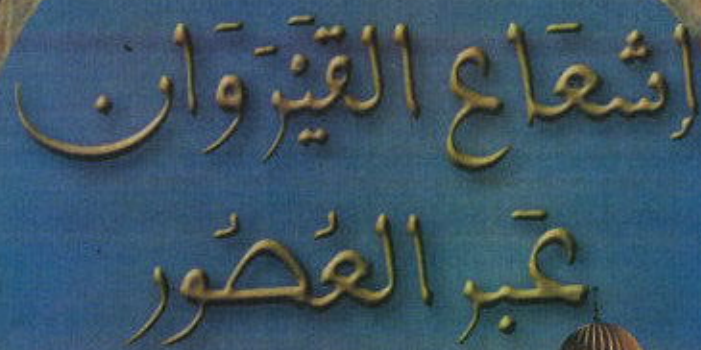 إشعَاع القَيْرَوَان
عَبر العُصُور